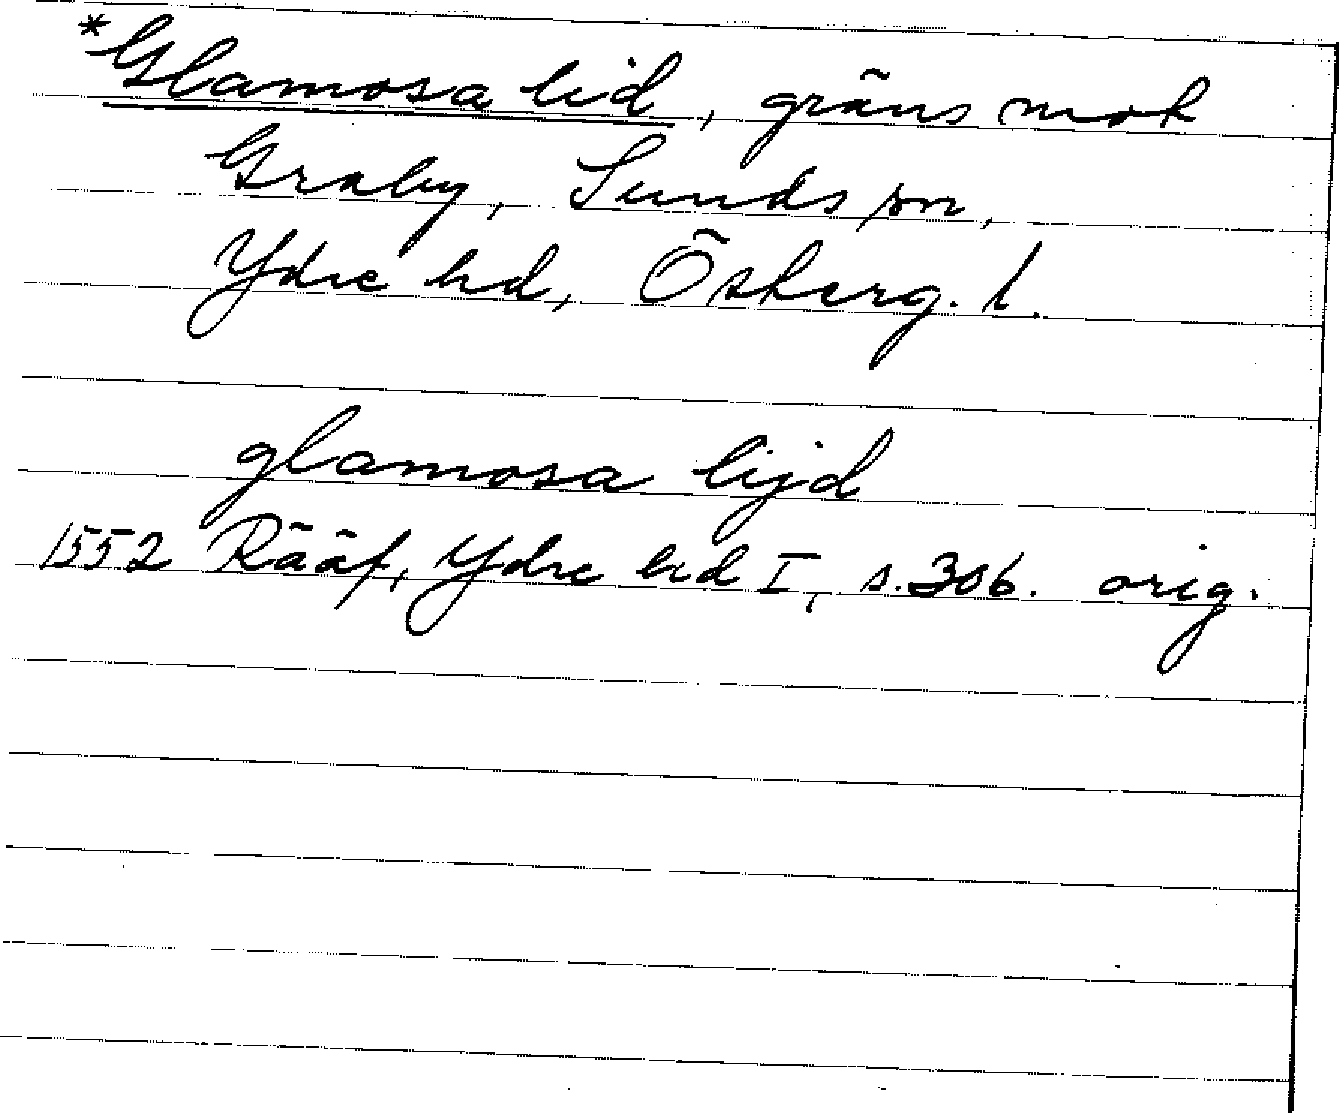 *Glamosa lid, gräns mot
Graby, Sunds sn,
Ydre hd, Österg. l.
glamosa lijd
1552 Rääf, Ydre hd I, s. 306. orig.